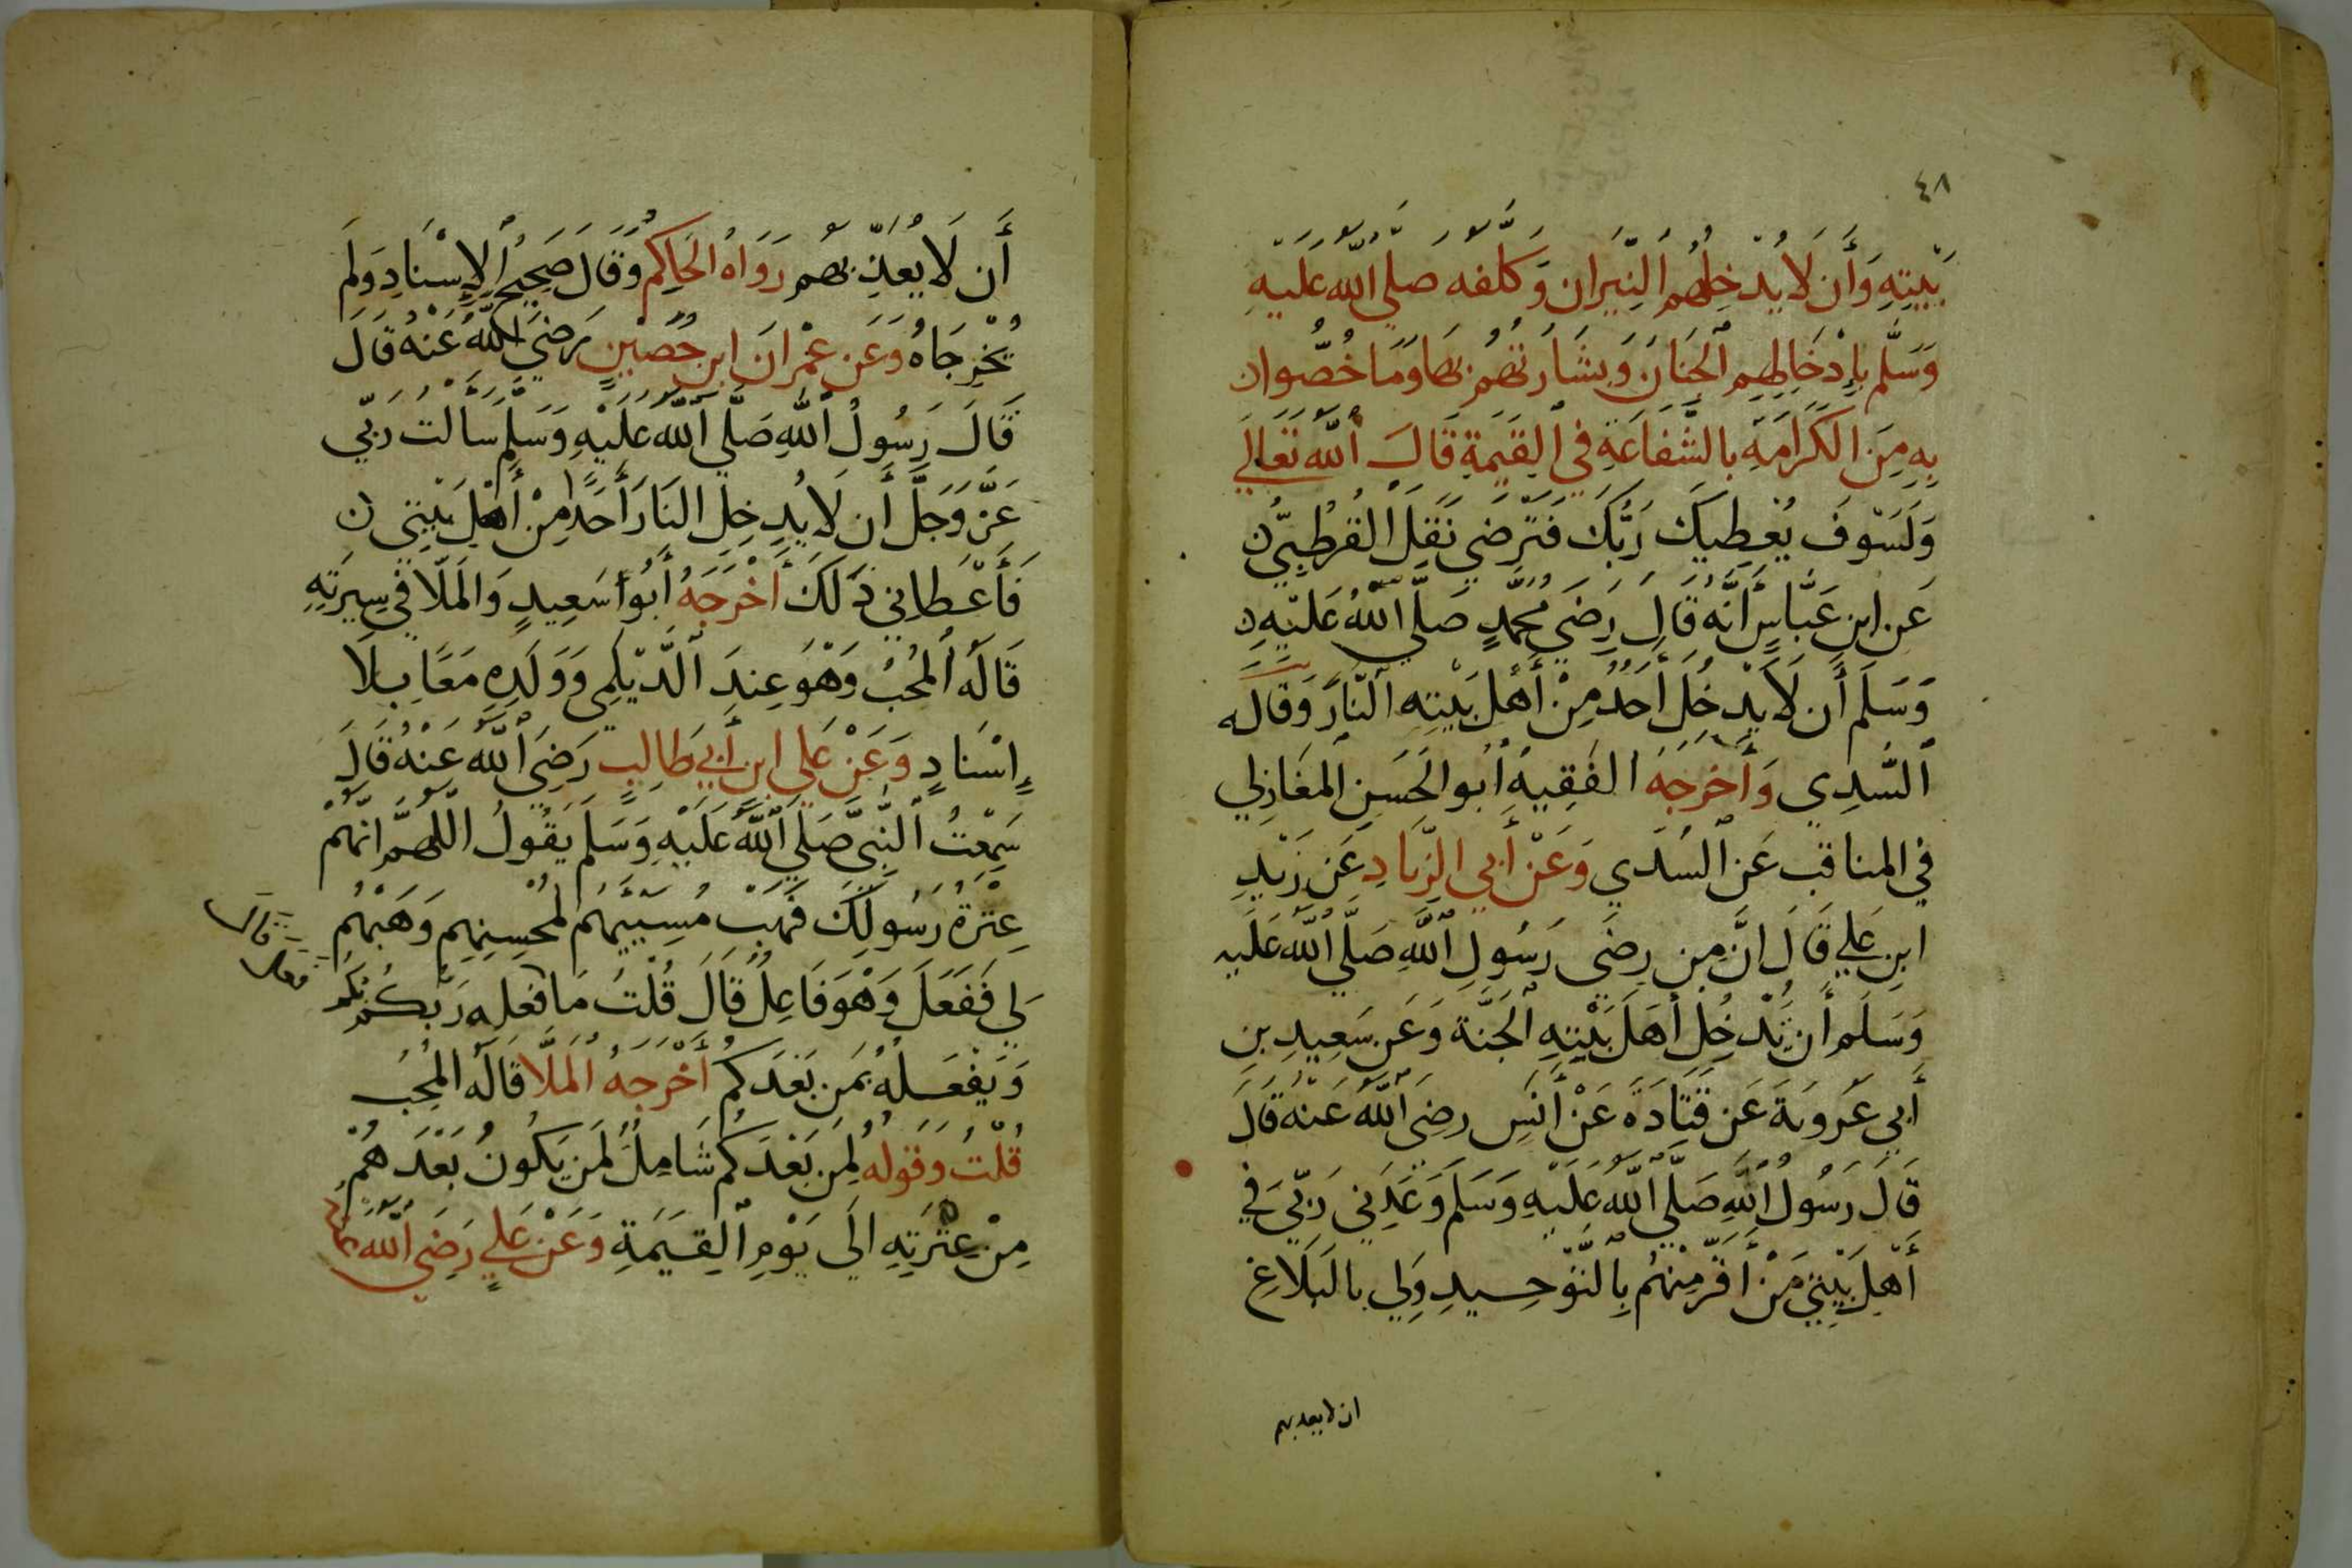 ٤٨
بَيْتِهِ وَأَن لَا يُدْخِلَهُمُ النِّيرَان وَكلفه صلى الله عَلَيهِ
وَسَلَّم بِإِدْخَالِهِم الجِنَانَ وَبِشَارَتهُم بهَا وَمَا خُصُّوا ن
بِهِ مِنَ الكَرَامَةِ بالشَّفَاعَةِ فِي القِيَمَةِ قَالَ اللَّه تَعَالَى
وَلَسَوْفَ يُعْطِيكَ رَبُّكَ فَتَرْضَى نَقَلَ القُرطُبِيُّ ن
عَن ابنِ عَبَّاسٍ أَنَّهُ قَالَ رَضِيَ مُحَمَّدٍ صَلَّى اللَّهُ عَلَيْهِ ن
وَسَلَمَ أَن لَا يَدْخُلَ أَحَدٌ مِنْ أَهْلِ بَيْتِهِ النَّارَ وَقَالَه
السُّدِي وَأَخرَجَهُ الفَقِيهُ أَبُو الحَسَنِ المغَازِلي
في المناقب عَنِ السُدَي وَعَنْ أَبي الزِّنَادِ عَن زَيْدِ
ابنِ عَلي قَالَ انَّ مِن رِضَى رَسُولِ اللَّهِ صَلَّى اللَّه عَلَيه
وَسَلَم أَن يُدْخِلَ أَهَل بَيْتِهِ الجَنَّة وَعَن سَعِيدِ بنِ
أَبي عَرُوبَة عَن قَتَادَةَ عَنْ أَنَسٍ رضِيَ اللَّهُ عَنْهُ قَالَ
قَالَ رَسُولُ اللَّهِ صَلَّى اللَّه عَلَيهِ وَسَلَمَ وَعَدَنِي رَبِّي فِي
أَهْلِ بَيْتِيَ مَنْ أَقَرَّ مِنْهُم بِالتَّوْحِيدِ وَلِي بالبَلَاغِ
ان لا يعدبهم
أَن لَا يُعَذِّبهُم رَوَاهُ الحَاكِم وَقَالَ صَحِيحُ الإِسْنَادِ وَلَم
يُخْرِجَاهُ وَعَن عِمْرَانَ ابنِ حُصَيْنٍ رَضِيَ اللَّهُ عَنْهُ قَالَ
قَالَ رَسُولُ اللَّهِ صَلَّى اللَّه عَلَيْهِ وَسَلَّم سَالتُ رَبِّي
عَزَّ وَجَلَّ أَن لَا يُدخِلَ النَارَ أَحَدًا مِنْ أَهْلِ بَيْتِي ن
فَأَعْطَانِي ذَلَكَ أَخْرَجَهُ أَبُو سَعِيدٍ وَالمَلَّا في سِيرَتِهِ
قَالَهُ المُحِبُ وَهْوَ عِندَ الدَّيْلَمِي وَوَلَدِهِ مَعًا بِلَا
اسْنَادٍ وَعَنْ عَلي ابنِ أَبِي طَالِبٍ رَضِيَ اللَّهُ عَنْهُ قَالَ
سَمِعْتُ النَّبِيَّ صَلَّى اللَّهُ عَلَيْهِ وَسَلَم يَقُولُ اللَّهُمَّ انَّهُمْ
عِتْرَةُ رَسُولِكَ فَهَبْ مُسِيَيَهُم لمُحْسِنِهِم وَهَبْهُم
لِي فَفَعَلَ وَهْوَ فَاعِلٌ قَالَ قُلْتُ مَا فعَله رَبُّكُم بكم
وَيَفْعَلهُ بمَن بَعْدَكُم أَخْرَجَهُ المَلَّا قَالَهُ المُحِبُ
قُلْتُ وَقَوله لِمَن بَعْدَكُم شَامِلٌ لمَن يَكُونُ بَعْدَهُمْ
مِنْ عِتْرَتِهِ الَى يَوْمِ القِيَمَةِ وَعَنْ عَلي رَضِيَ اللَّهُ عنه